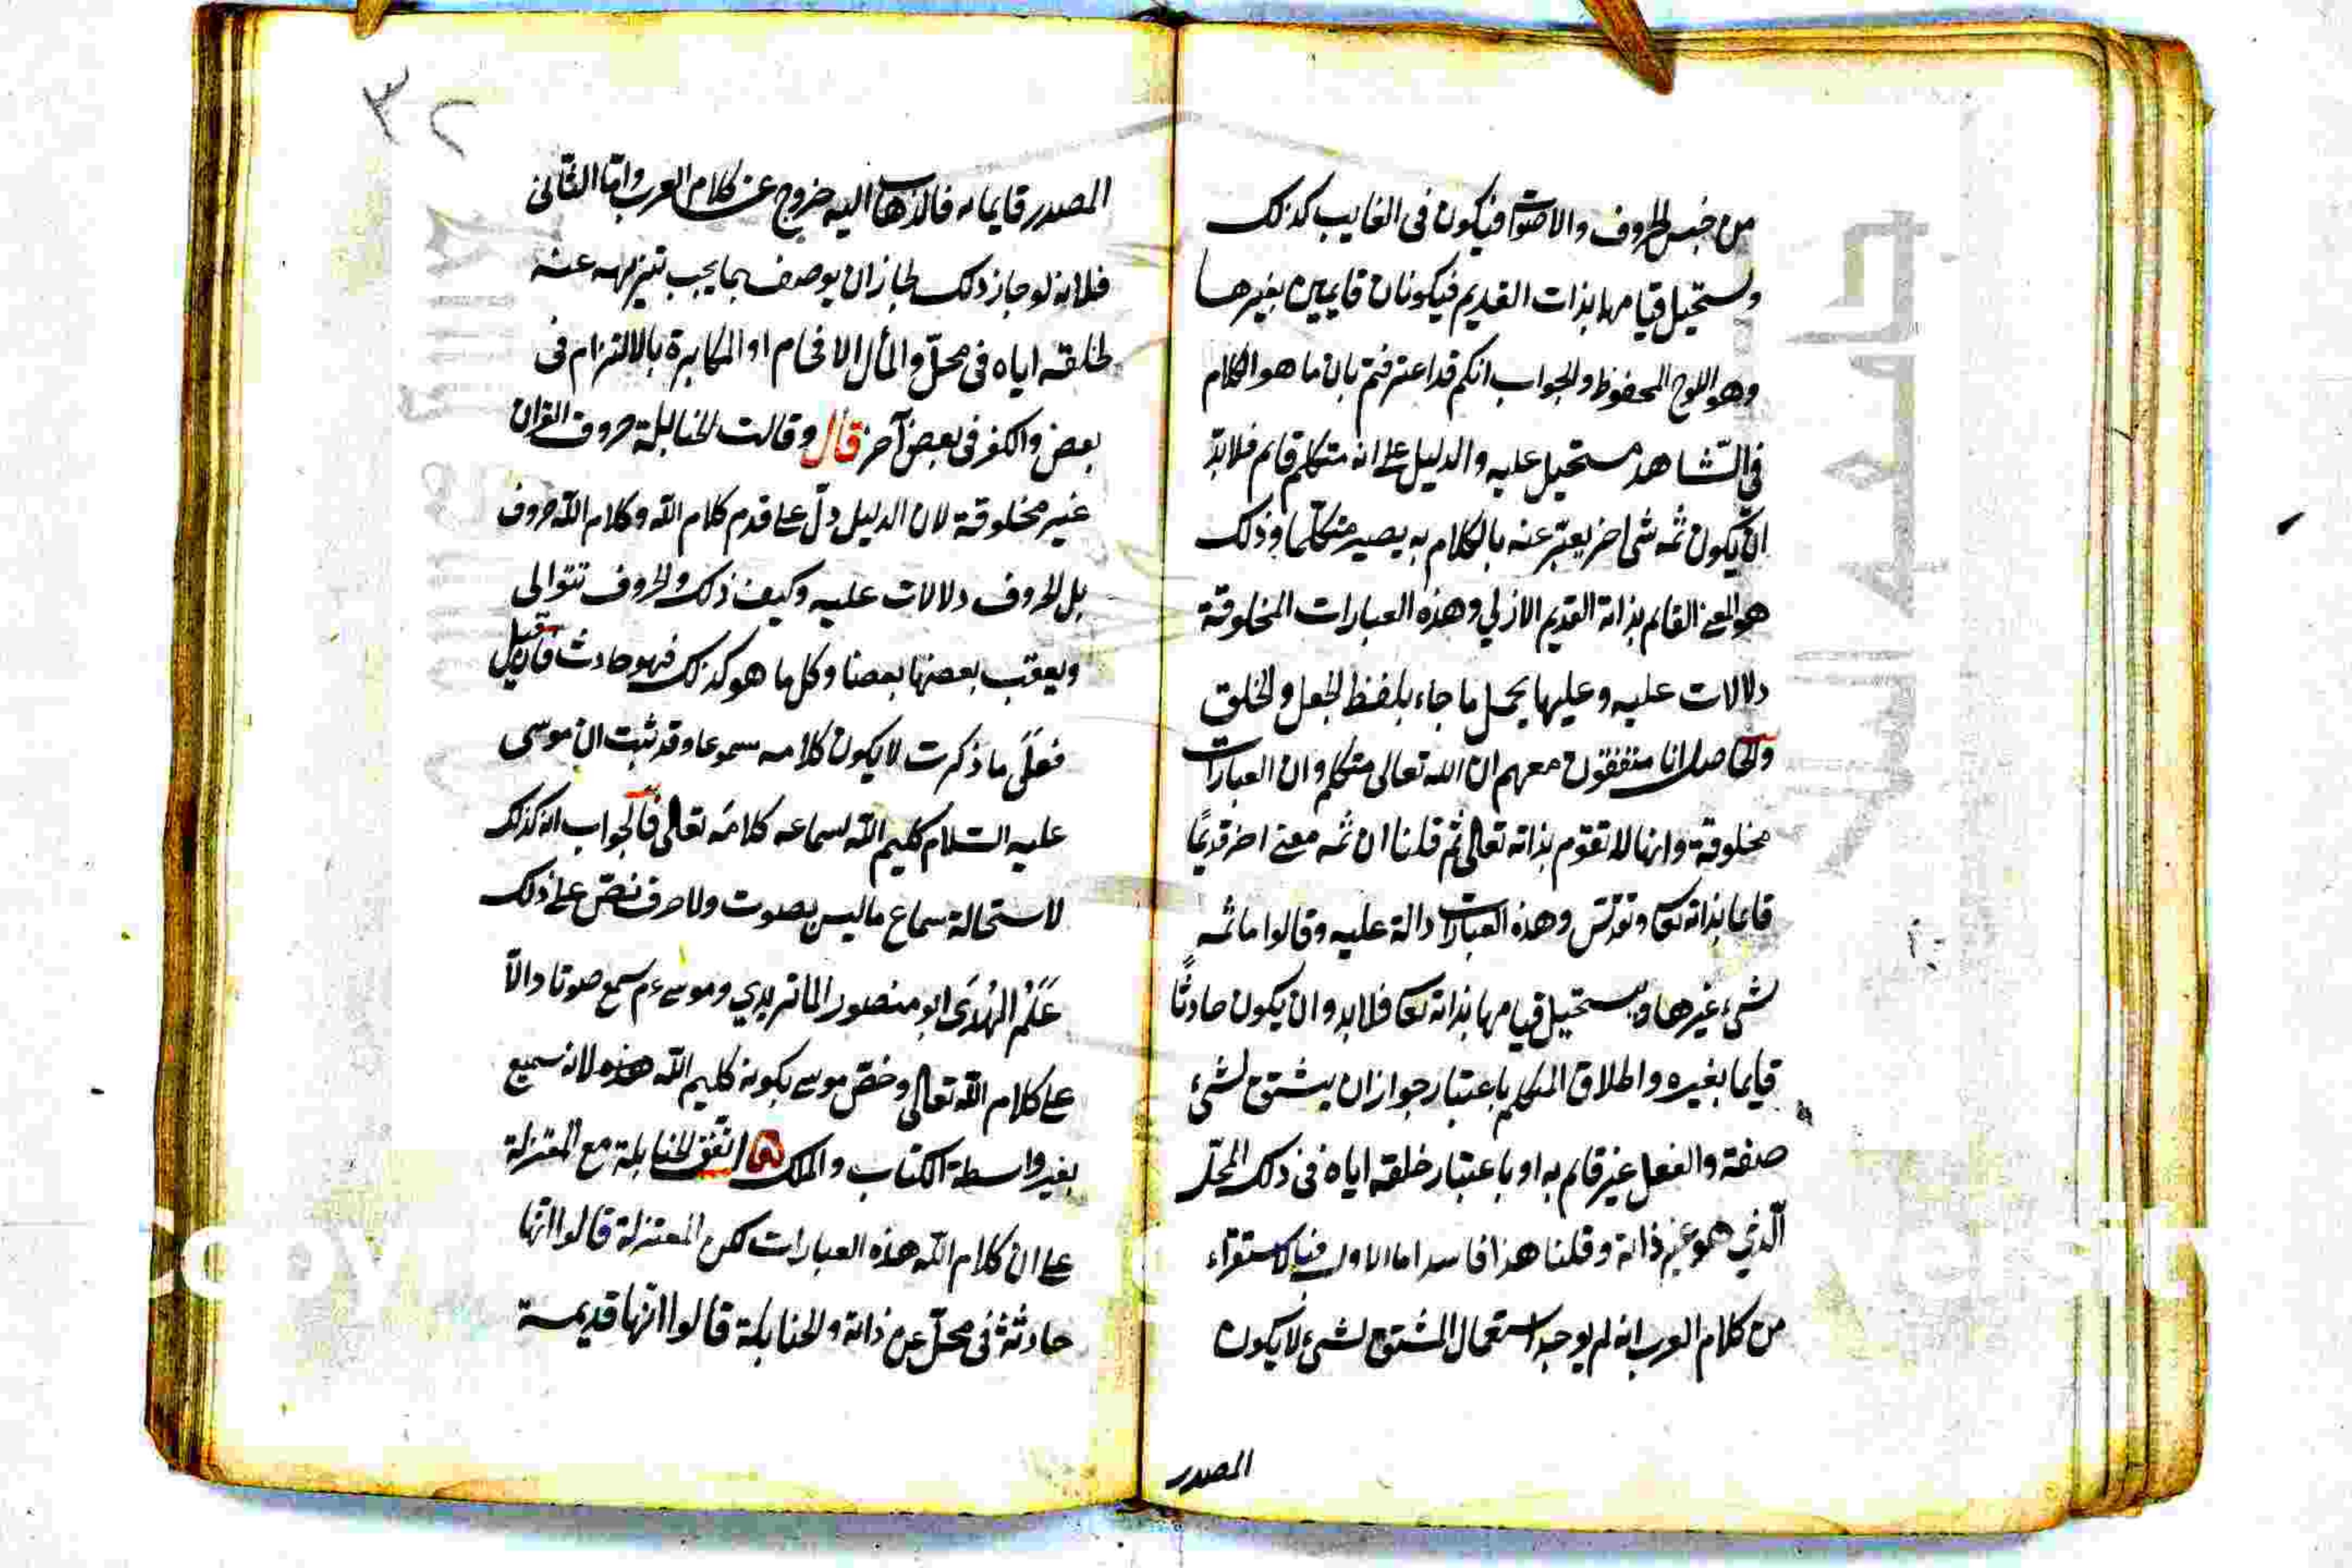 من جنس الحروف والاصوات فيكون فى الغايب كذلك
ويستحيل قيامها بذات القديم فيكونان قايمين بغيرها
وهو اللوح المحفوظ والجواب انكم قد اعترفتم بان ما هو الكلام
فى الشاهد مستحيل عليه والدليل على انه متكلم قايم فلا بدّ
ان يكون ثمه شئ اخر يعبّر عنه بالكلام به يصير متكلما وذلك
هو المعنى القايم بذاته القديم الازلي وهذه العبارات المخلوقة
دلالات عليه وعليها يحمل ما جاء بلفظ الجعل والخلق
والحاصل انا متفقون معهم ان الله تعالى متكلم وان العبارات
مخلوقة وانها لا تقوم بذاته تعالى ثم قلنا ان ثمه معنى اخر قديمًا
قايما بذاته تعا وتقدّس وهذه العبارات دالة عليه وقالوا ما ثمه
شئ غيرها ويستحيل قيامها بذاته تعا فلا بد وان يكون حادثًا
قايما بغيره واطلاق المتكلم باعتبار جواز ان يشتق لشئ
صفة والفعل غير قايم به او باعتبار خلقه اياه فى ذلك المحلّ
الّذي هو غير ذاته وقلنا هذا فاسد اما الاول فبالاستقراء
من كلام العرب انه لم يوجد استعمال المشتق لشئ لا يكون
المصدر
٣٢
المصدر قايما به فالذهاب اليه خروج عن كلام العرب وامّا الثّانى
فلانه لو جاز ذلك لجاز ان يوصف بما يجب تنزيهه عنه
لخلقه اياه فى محلّ والمأل الافحام او المكابرة بالالتزام فى
بعض والكفر فى بعض آخر قال وقالت الحنابلة حروف القران
غير مخلوقة لان الدليل دلّ على قدم كلام الله وكلام الله حروف
بل الحروف دلالات عليه وكيف ذلك والحروف تتوالى
ويعقب بعضها بعضا وكل ما هو كذلك فهو حادث فان قيل
فعلى ما ذكرت لا يكون كلامه مسموعا وقد ثبت ان موسى
عليه السّلام كليم الله لسماعه كلامه تعالى فالجواب انه كذلك
لاستحالة سماع ما ليس بصوت ولا حرف نصّ على ذلك
عَلَمُ الهُدَى ابو منصور الماتريدي وموسى ءم سمع صوتا دالّا
على كلام الله تعالى وخصّ موسى بكونه كليم الله هذه لانه سميع
بغير واسطة الكتاب والملك اتّفق الحنابلة مع المعتزلة
على ان كلام الله هذه العبارات لكن المعتزلة قالوا انّها
حادثة فى محلّ عن ذاته والحنابلة قالوا انّها قديمة